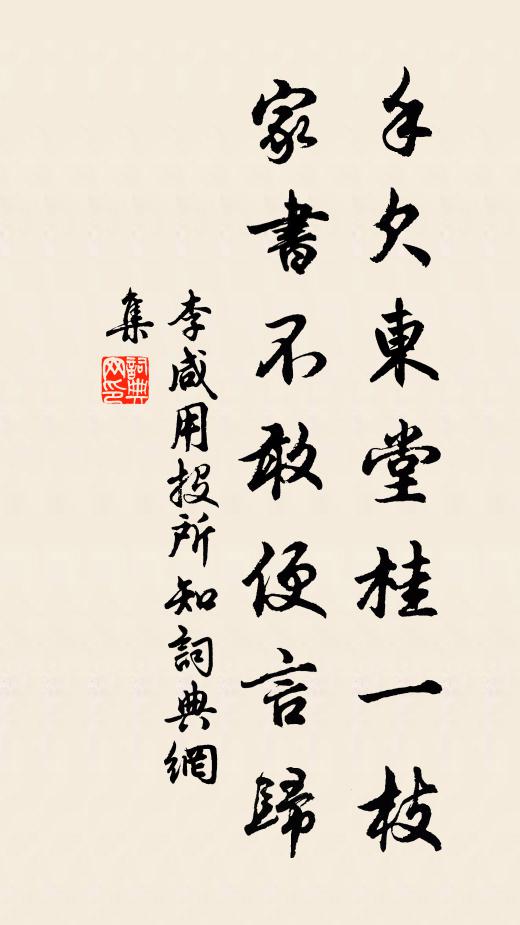 手欠東堂桂一枝
家書不敢便言歸
李咸用投所知詞典網
集
詞典
网印